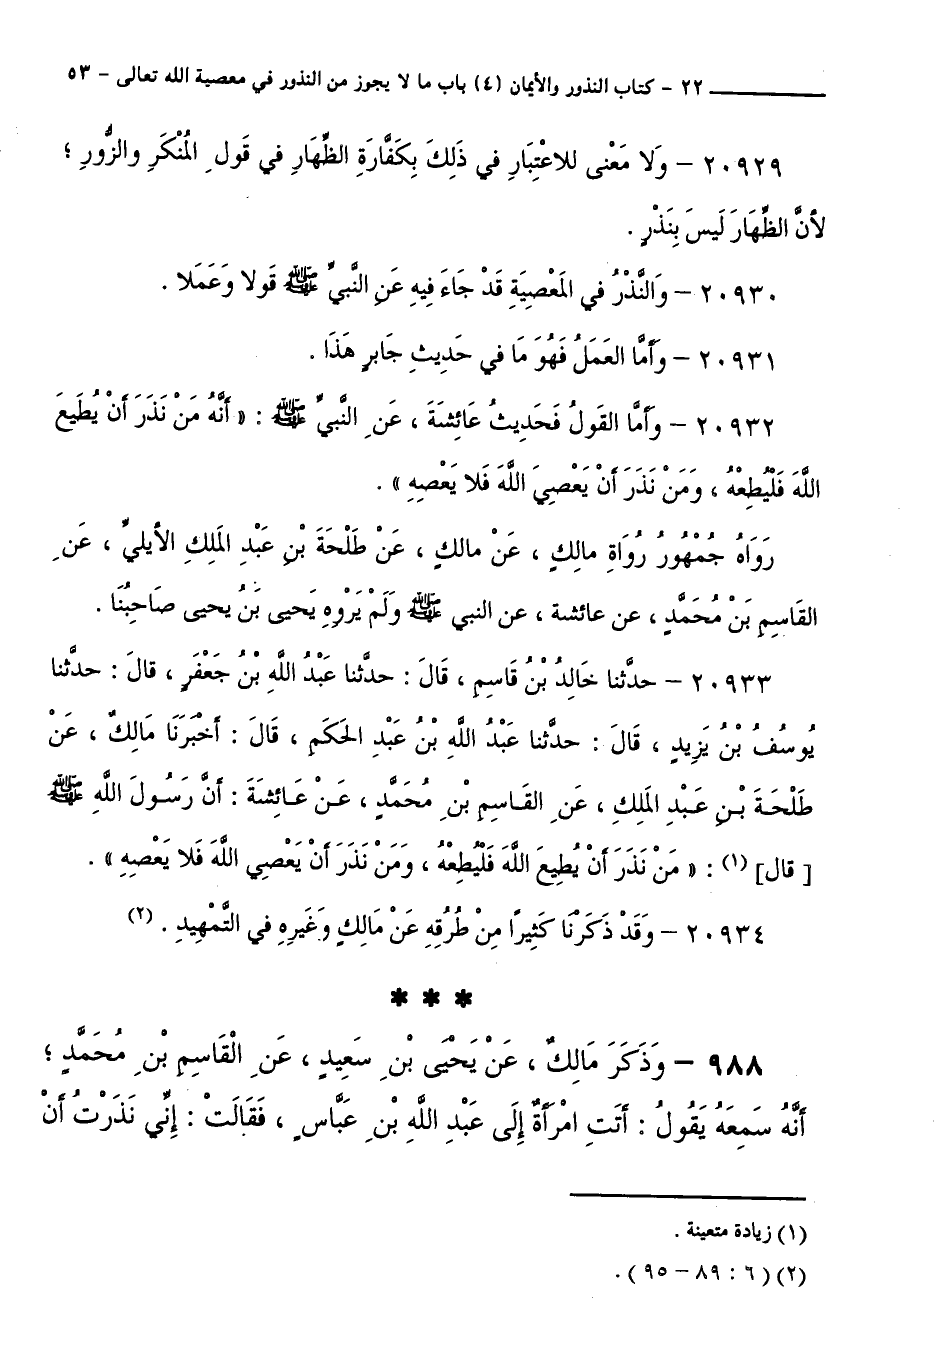 ٢٢ - كتاب النذور والأيمان (٤) باب ما لا يجوز من النذور في معصية الله تعالى - ٥٣
٢٠٩٢٩ - وَلا مَعْنى للاعْتِبَارِ في ذَلِكَ بِكَفَّارَةِ الظِّهَارِ في قَولِ المُنْكَرِ والزُّورِ ؛
لأنَّ الظِّهَارَ لَيسَ بِنَذْرٍ .
٢٠٩٣٠ - وَالنَّذْرُ في المَعْصِيَةِ قَدْ جَاءَ فِيهِ عَنِ النَّبيِّ ﷺ قَولا وَعَمَلا .
٢٠٩٣١ - وَأَمَّا العَمَلُ فَهُوَ مَا في حَدِيثِ جَابِرٍ هَذَا .
٢٠٩٣٢ - وأَمَّا القَولُ فَحَدِيثُ عَائِشَةَ ، عَنِ النَّبيِّ ﷺ : « أَنَّهُ مَنْ نَذَرَ أَنْ يُطَيعَ
اللَّهَ فَلْيُطِعْهُ ، وَمَنْ نَذَرَ أَنْ يَعْصِيَ اللَّهَ فَلا يَعْصِهِ » .
رَوَاهُ جُمْهُورُ رُوَاةِ مالِكٍ ، عَنْ مالكٍ ، عَنْ طَلْحَةَ بْنِ عَبْدِ المَلِكِ الأيليِّ ، عَنِ
القَاسِمِ بَنْ مُحَمَّدٍ ، عن عائشة ، عن النبي ﷺ وَلَمْ يَرْوِهِ يَحيى بَنُ يحيى صَاحِبُنَا .
٢٠٩٣٣ - حدَّثنا خَالِدُ بْنُ قَاسِمٍ ، قَالَ : حدَّثنا عَبْدُ اللَّهِ بْنُ جَعْفَرٍ ، قالَ : حدَّثنا
يُوسُفُ بْنُ يَزِيدٍ ، قَالَ : حدَّثنا عَبْدُ اللَّهِ بْنُ عَبْدِ الحَكَمِ ، قَالَ : أَخْبَرَنَا مَالِكٌ ، عَنْ
طَلْحَةَ بْنِ عَبْدِ المَلِكِ ، عَنِ القَاسِمِ بْنِ مُحَمَّدٍ ، عَنْ عَائِشَةَ : أنَّ رَسُولَ اللَّهِ ﷺ
[ قال] (١) : « مَنْ نَذَرَ أَنْ يُطِيعَ اللَّهَ فَلْيُطِعْهُ ، وَمَنْ نَذَرَ أَنْ يَعْصِي اللَّهَ فَلا يَعْصِهِ » .
٢٠٩٣٤ - وَقَدْ ذَكَرْنَا كَثِيرًا مِنْ طُرُقِهِ عَنْ مَالِكٍ وغَيرِهِ في التَّمْهِيدِ . (٢)
* * *
٩٨٨ - وَذَكَرَ مَالِكٌ ، عَنْ يَحْيَى بْنِ سَعِيدٍ ، عَنِ الْقَاسِمِ بْنِ مُحَمَّدٍ ؛
أَنَّهُ سَمِعَهُ يَقُولُ : أَتَتِ امْرَأَةٌ إِلَى عَبْدِ اللَّهِ بْنِ عَبَّاسٍ ، فَقَالَتْ : إِنِّي نَذَرْتُ أَنْ
(١) زيادة متعينة .
(٢) (٦ : ٨٩ - ٩٥) .